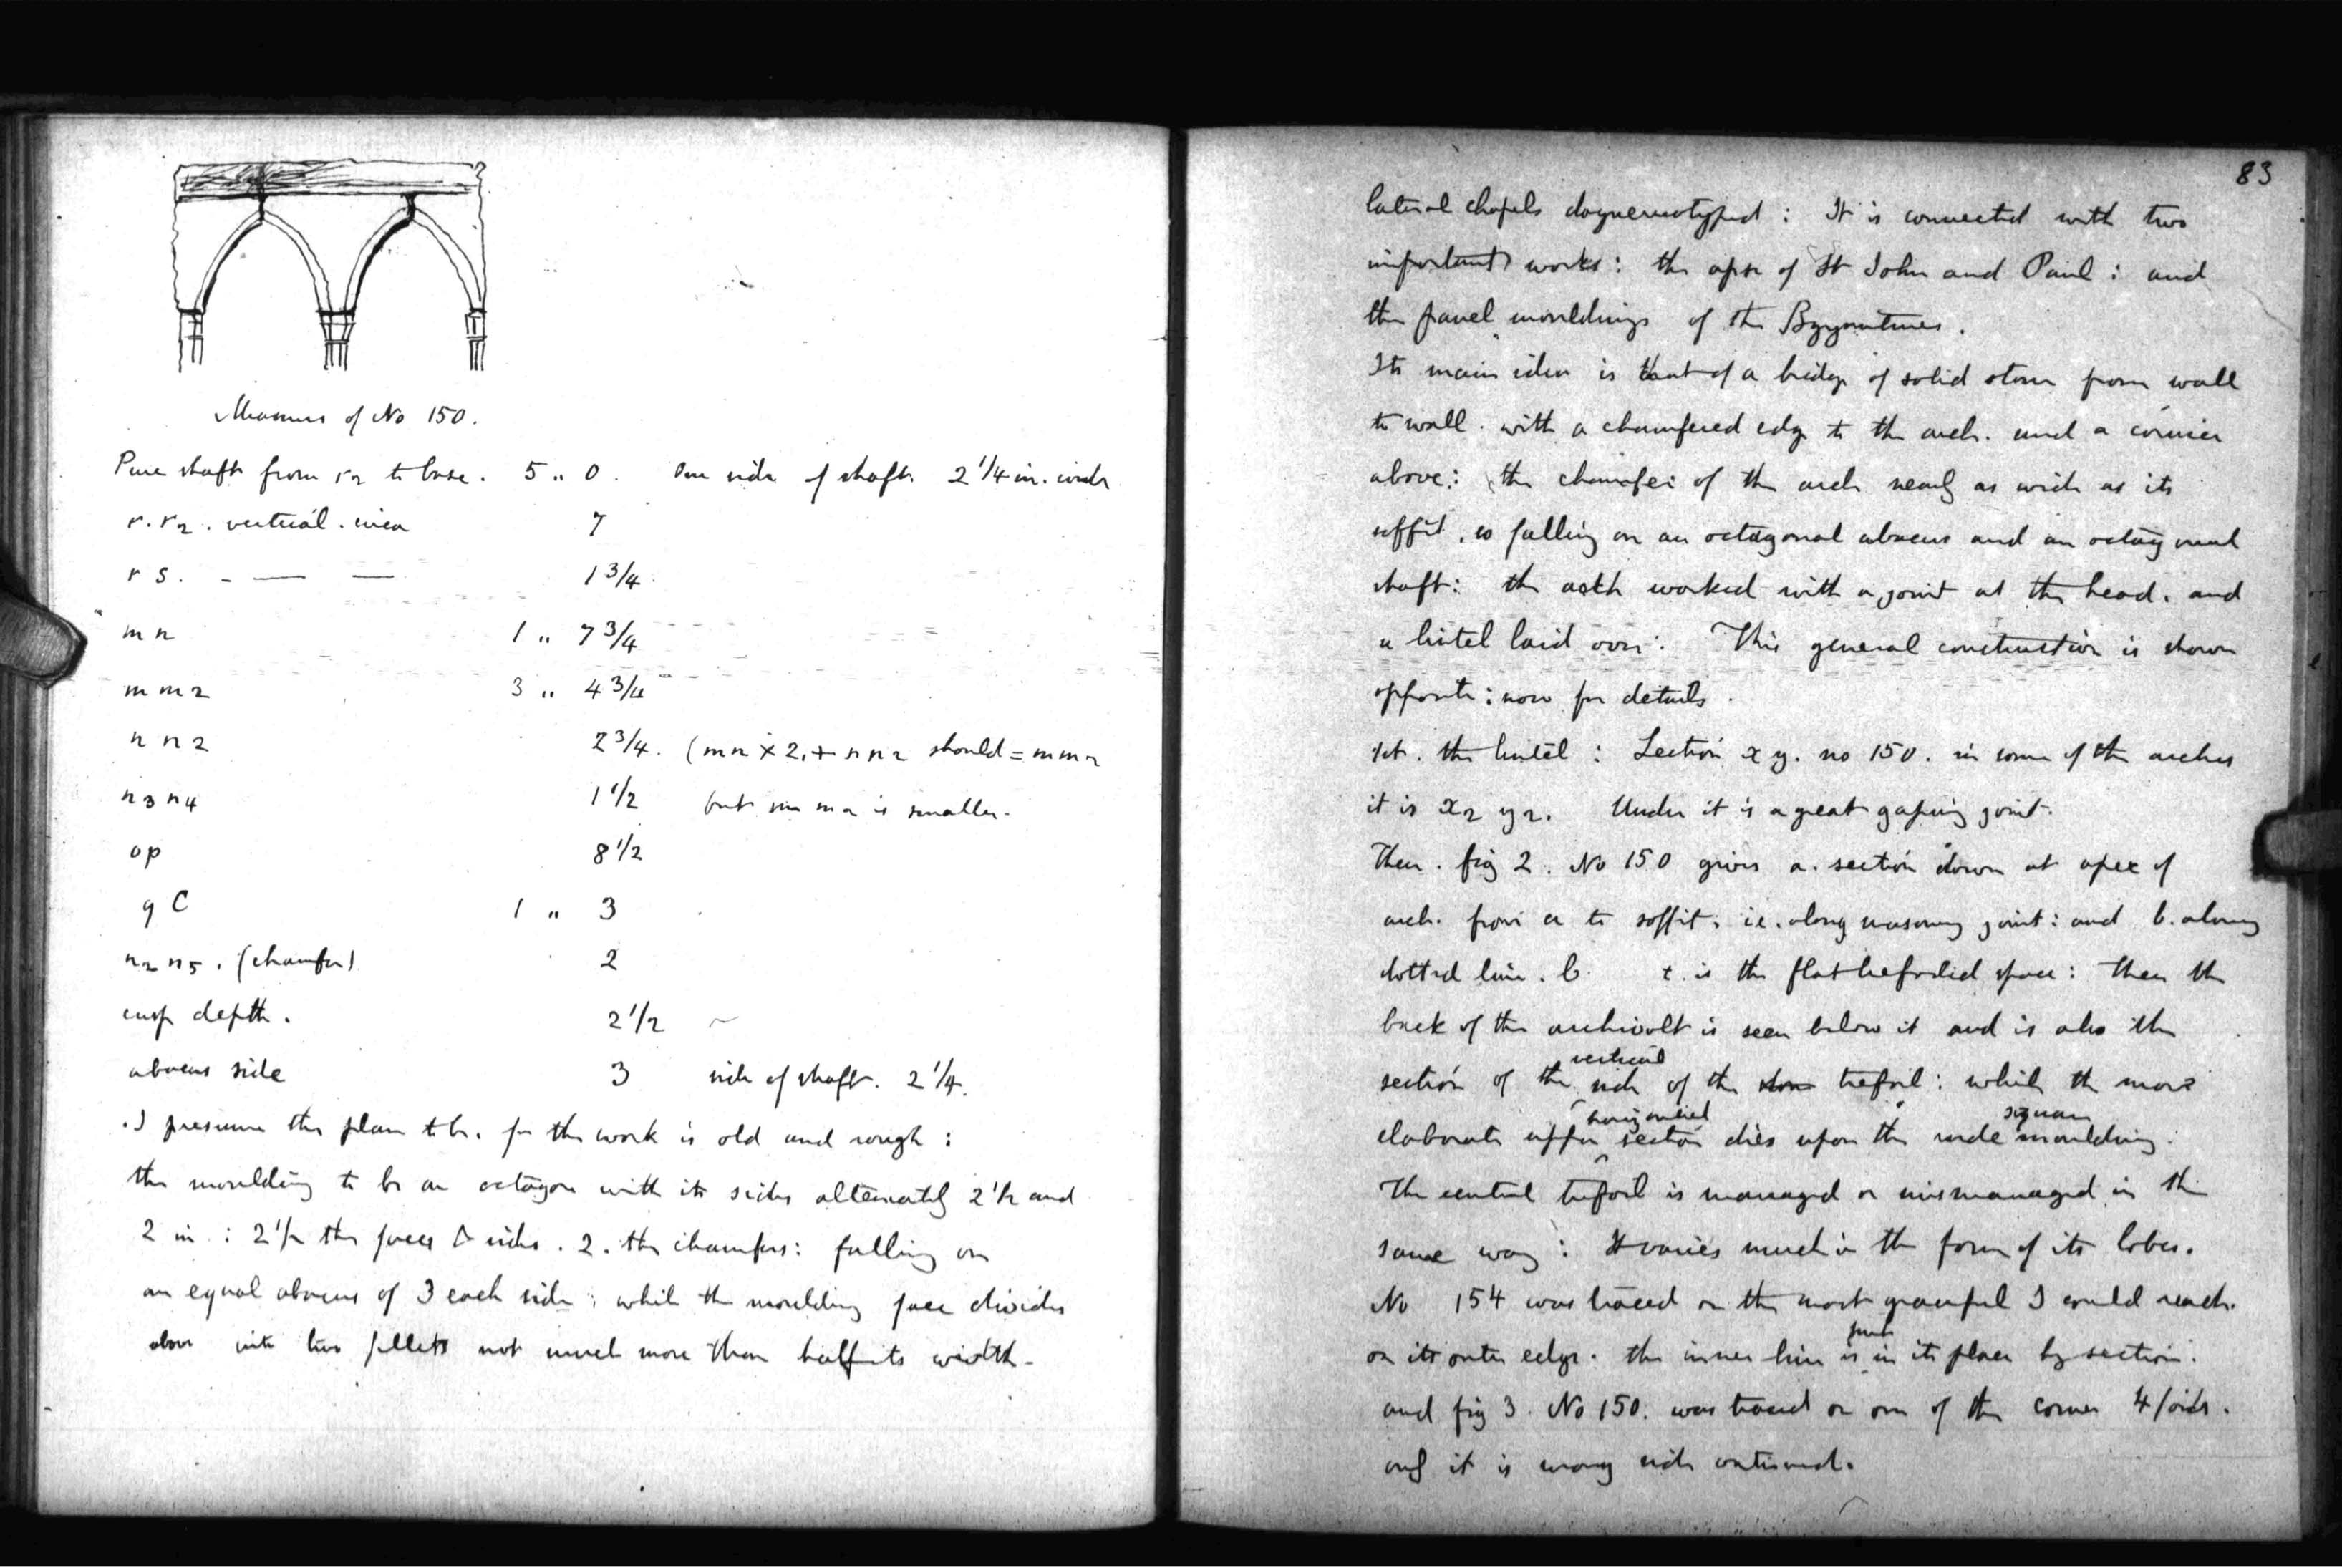 Measures of No 150.
Pure shaft from r2 to base. 5 " 0. One side of shaft. 2 1/4 in.
r. r2. vertical.     7
r s. - — —     1 3/4.
m n     1 " 7 3/4
m m2     3 " 4 3/4
n n2     2 3/4. (mn x 2, + n n2 should = m m2
n3 n4     1 1/2     but m m2 is smaller.
o p     8 1/2
q C     1 " 3
n2 n5. (chamfer)     2
cusp depth.     2 1/2
abacus side     3     side of shaft. 2 1/4.
I presume the plan to be. for the work is old and rough:
the moulding to be an octagon with its sides alternately 2 1/2 and
2 in: 2 1/2 the faces & sides. 2. the chamfers: falling on
an equal abacus of 3 each side; while the moulding face divides
above into two fillets not much more than half its width.
83
lateral chapels daguerreotyped: It is connected with two
important works: the apse of St John and Paul: and
the panel mouldings of the Byzantines.
Its main idea is that of a bridge of solid stone from wall
to wall. with a chamfered edge to the arch. and a cornice
above: the chamfer of the arch nearly as wide as its
soffit, so falling on an octagonal abacus and an octagonal
shaft: the arch worked with a joint at the head. and
a lintel laid over: This general construction is shown
opposite: now for details.
1st. the lintel: Section x y. no 150. in some of the arches
it is x2 y2. Under it is a great gaping joint.
Then. fig 2. No 150 gives a. section down at apex of
arch. from a to soffit. ie. along masonry joint: and b. along
dotted line. b. t. is the flat trefoiled space: then the
back of the archivolt is seen below it and is also the
section of the vertical side of the trefoil: while the more
elaborate upper horizontal section dies upon the side square moulding.
The central trefoil is managed or mismanaged in the
same way: It varies much in the form of its lobes.
No 154 was traced on the most graceful I could reach.
on its outer edge. the inner line is put in its place by section.
and fig 3. No 150. was traced on one of the corner 4foils.
only it is wrong side outward.